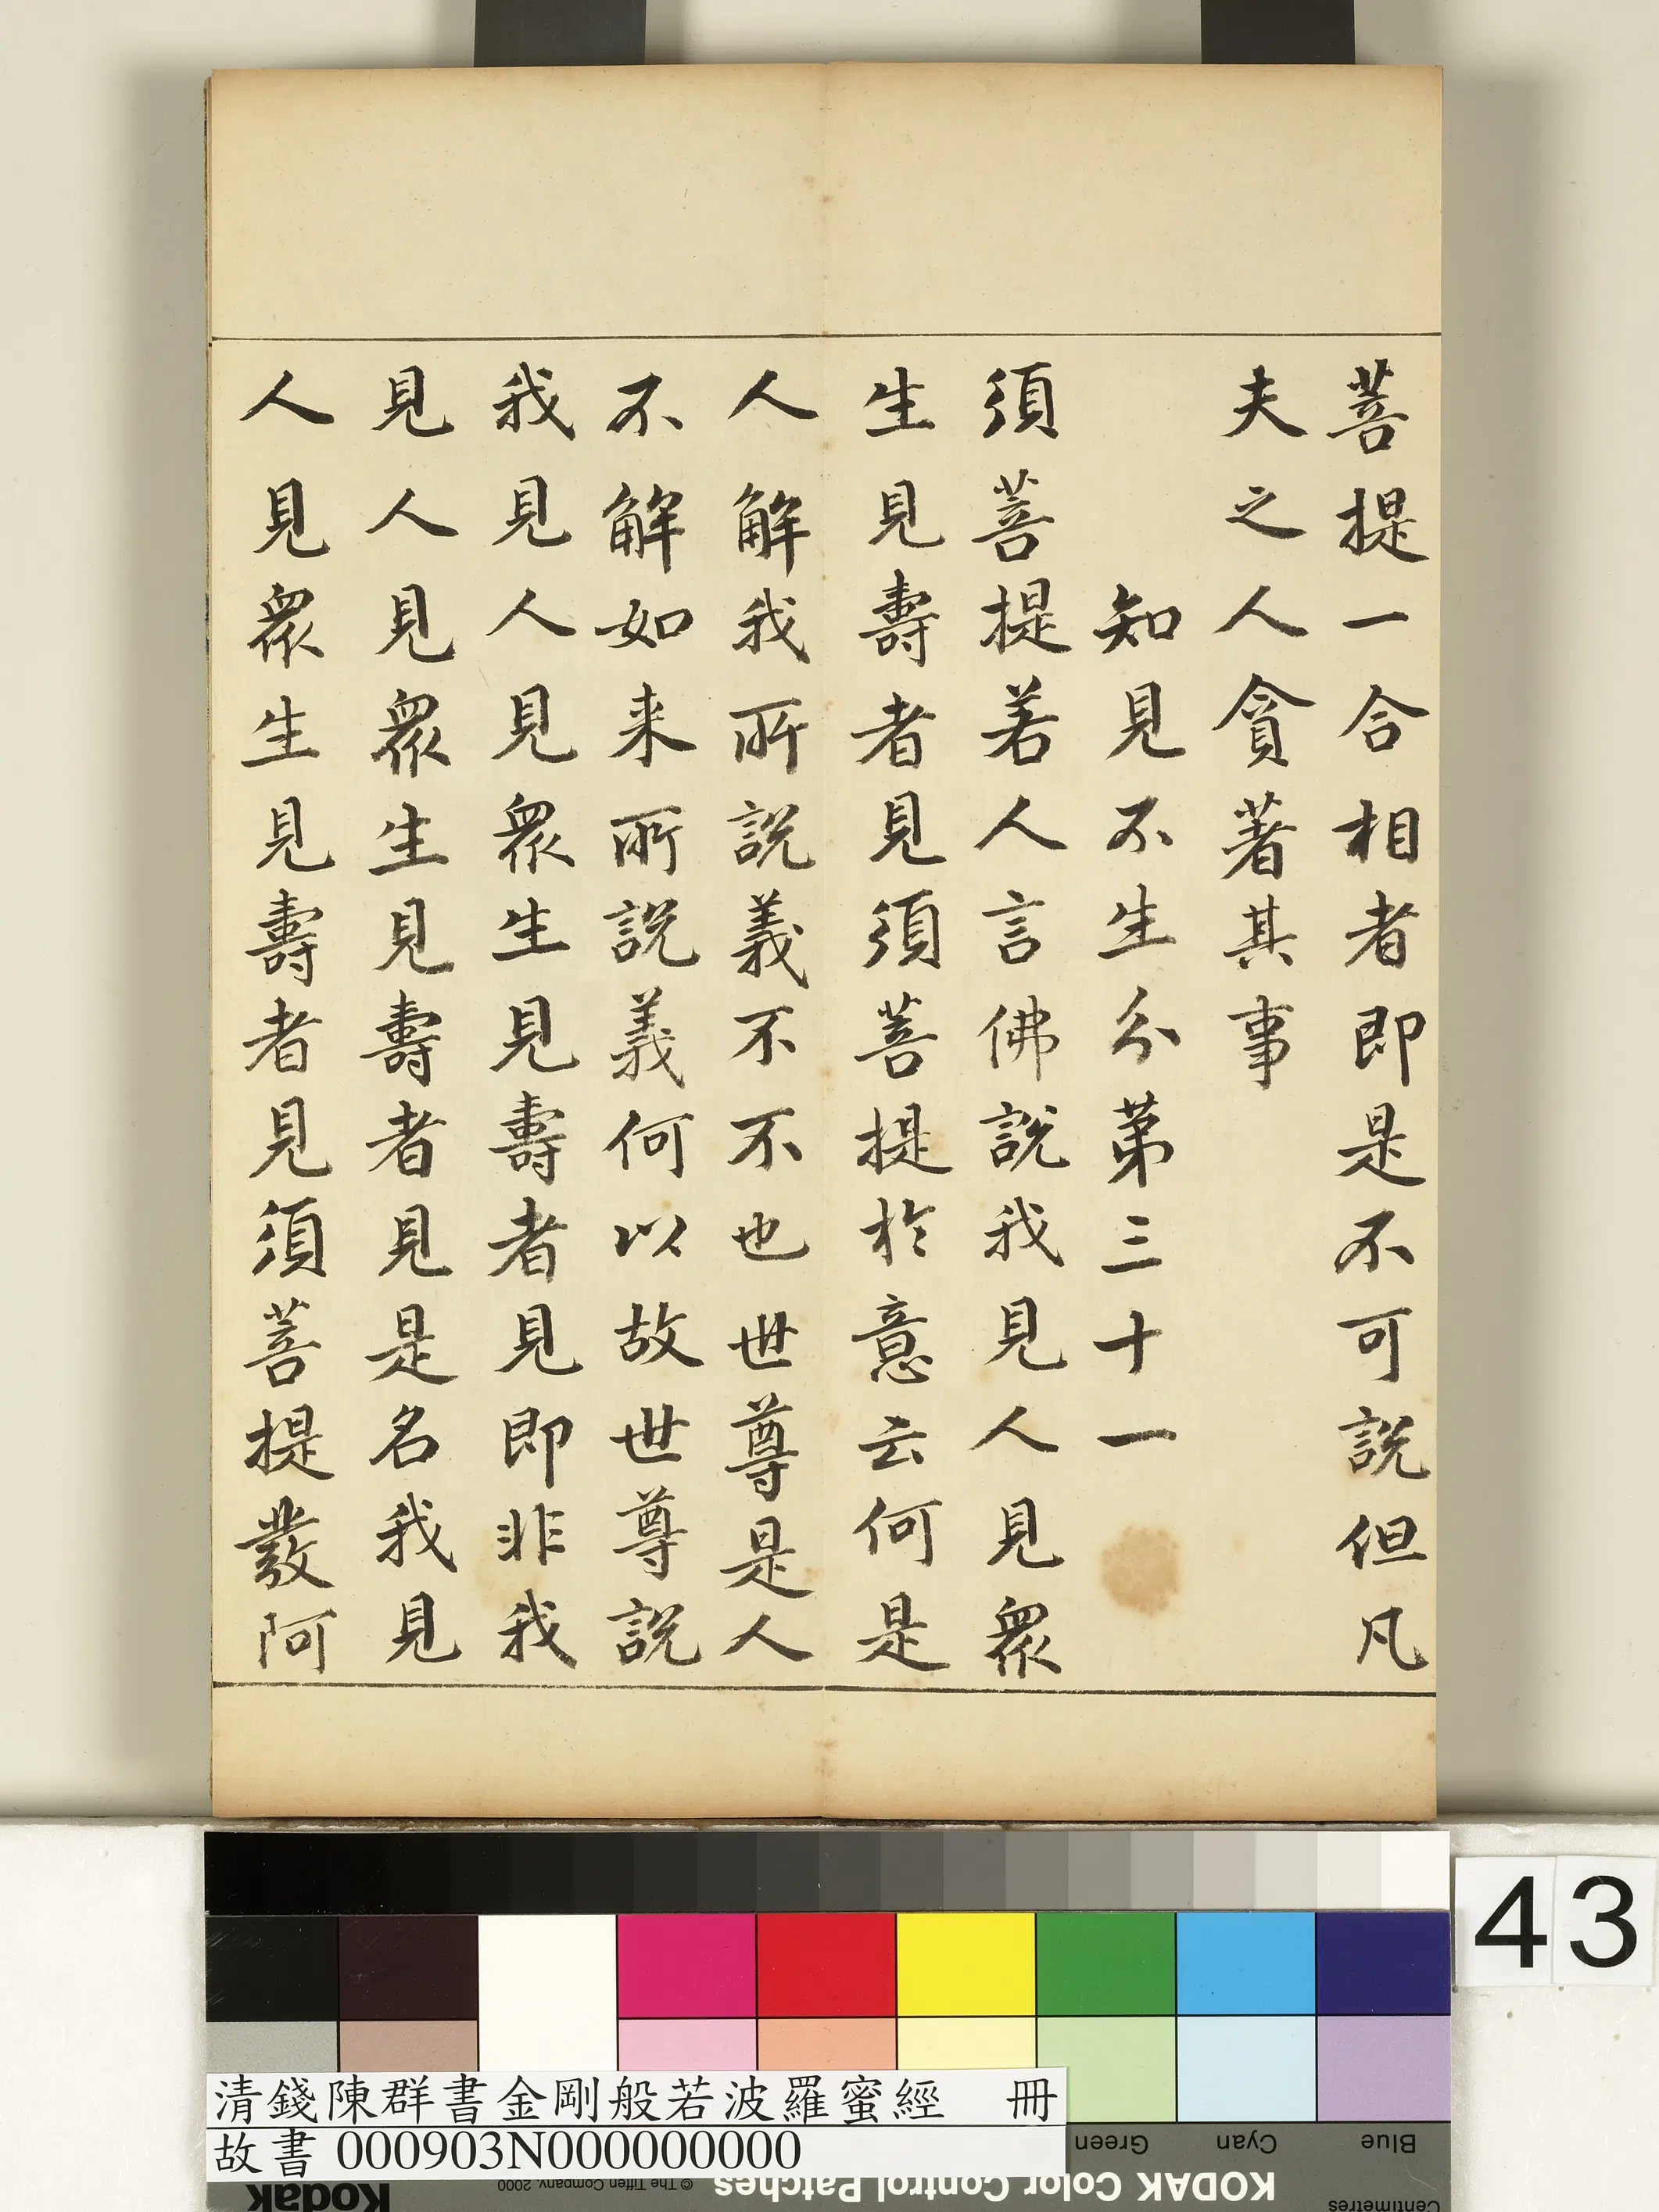 菩提一合相者即是不可說但凡
夫之人貪著其事
知見不生分第三十一
須菩提若人言佛說我見人見衆
生見壽者見須菩提於意云何是
人解我所說義不不也世尊是人
不解如来所說義何以故世尊說
我見人見衆生見壽者見即非我
見人見衆生見壽者見是名我見
人見衆生見壽者見須菩提發阿
43
清錢陳群書金剛般若波羅蜜經 冊
故書 000903N000000000
Green Cyan Blue
KODAK Color Control Patches
© The Tiffen Company, 2000
Kodak
Centimetres